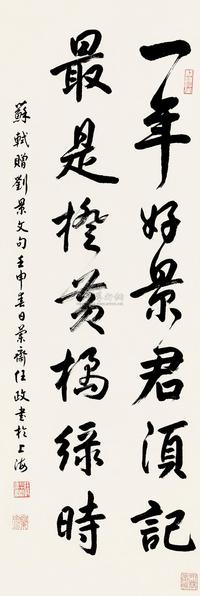 一年好景君須記
最是橙黃橘綠時
蘇軾贈劉景文句壬申春日蘭齋任政書於上海